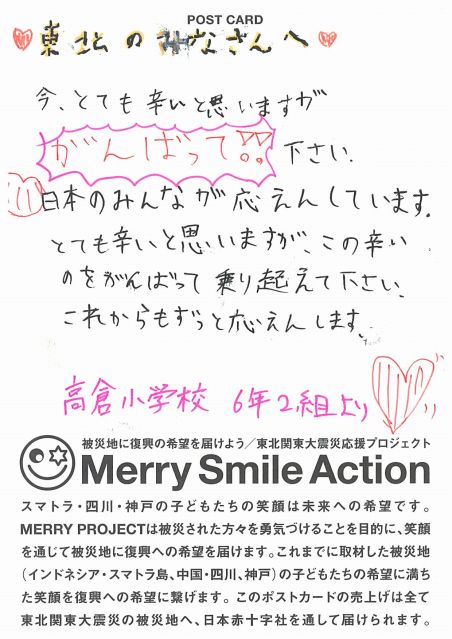 POST CARD
東北のみなさんへ
今、とても辛いと思いますが
がんばって!! 下さい.
日本のみんなが応えんしています.
とても辛いと思いますが、この辛い
のをがんばって乗り起えて下さい.
これからもずっと応えんします.
高倉小学校 6年2組より
被災地に復興の希望を届けよう/東北関東大震災応援プロジェクト
Merry Smile Action
スマトラ・四川・神戸の子どもたちの笑顔は未来への希望です。
MERRY PROJECTは被災された方々を勇気づけることを目的に、笑顔
を通じて被災地に復興への希望を届けます。これまでに取材した被災地
(インドネシア・スマトラ島、中国・四川、神戸)の子どもたちの希望に満ち
た笑顔を復興への希望に繋げます。このポストカードの売上げは全て
東北関東大震災の被災地へ、日本赤十字社を通して届けられます。